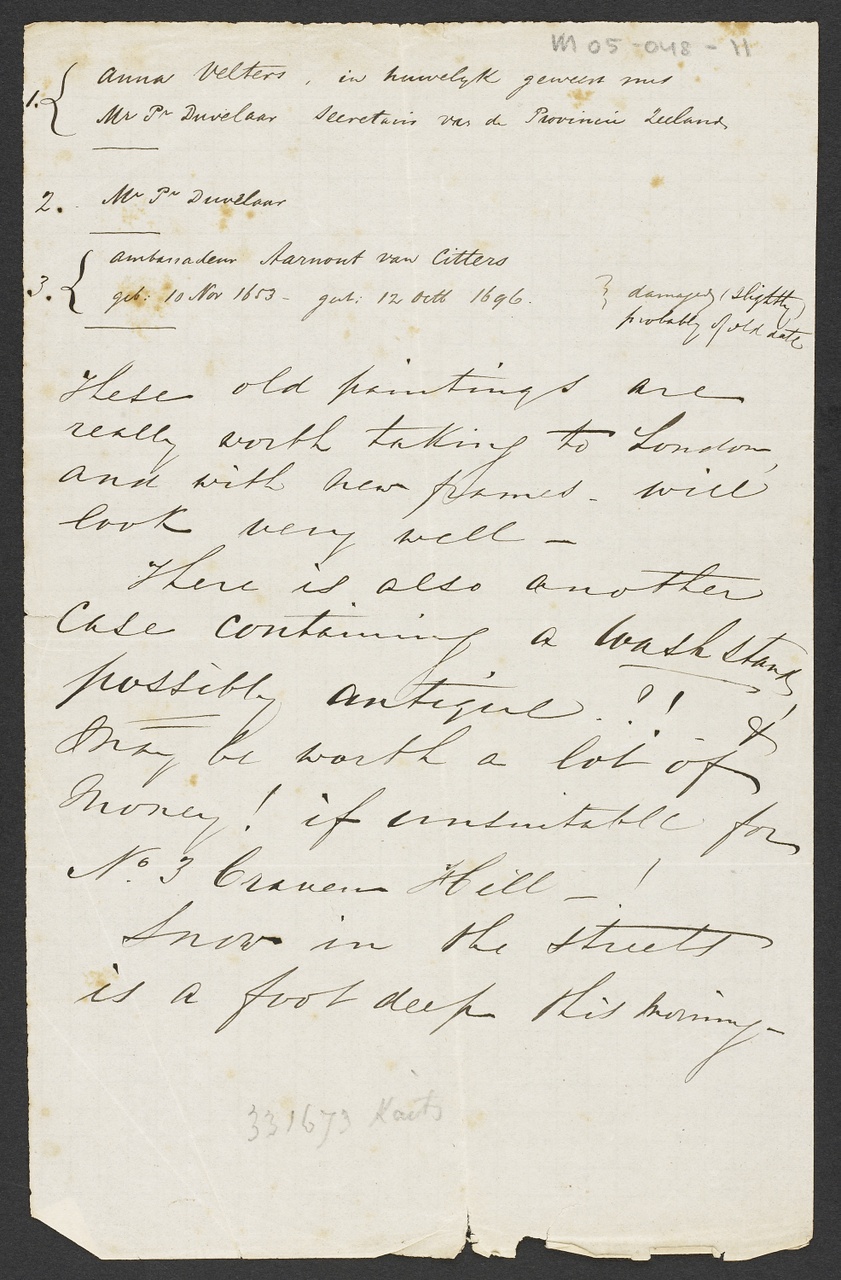 M 05-048-H
1. { Anna Velters, in huwelyk geweest met
Mr Pr Duvelaar Secretaris van de Provincie Zeeland
2. Mr Pr Duvelaar
3. { Ambassadeur Aarnout van Citters
geb: 10 Nov 1653 - gest: 12 Octb 1696. } damaged (slightly)
probably of old date
These old paintings are
really worth taking to London,
and with new frames - will
look very well -
There is also another
Case containing a wash stand,
possibly antique..?! &
May be worth a lot of
Money! if unsuitable for
No. 3 Craven Hill - !
Snow in the streets
is a foot deep this Morning -
331673